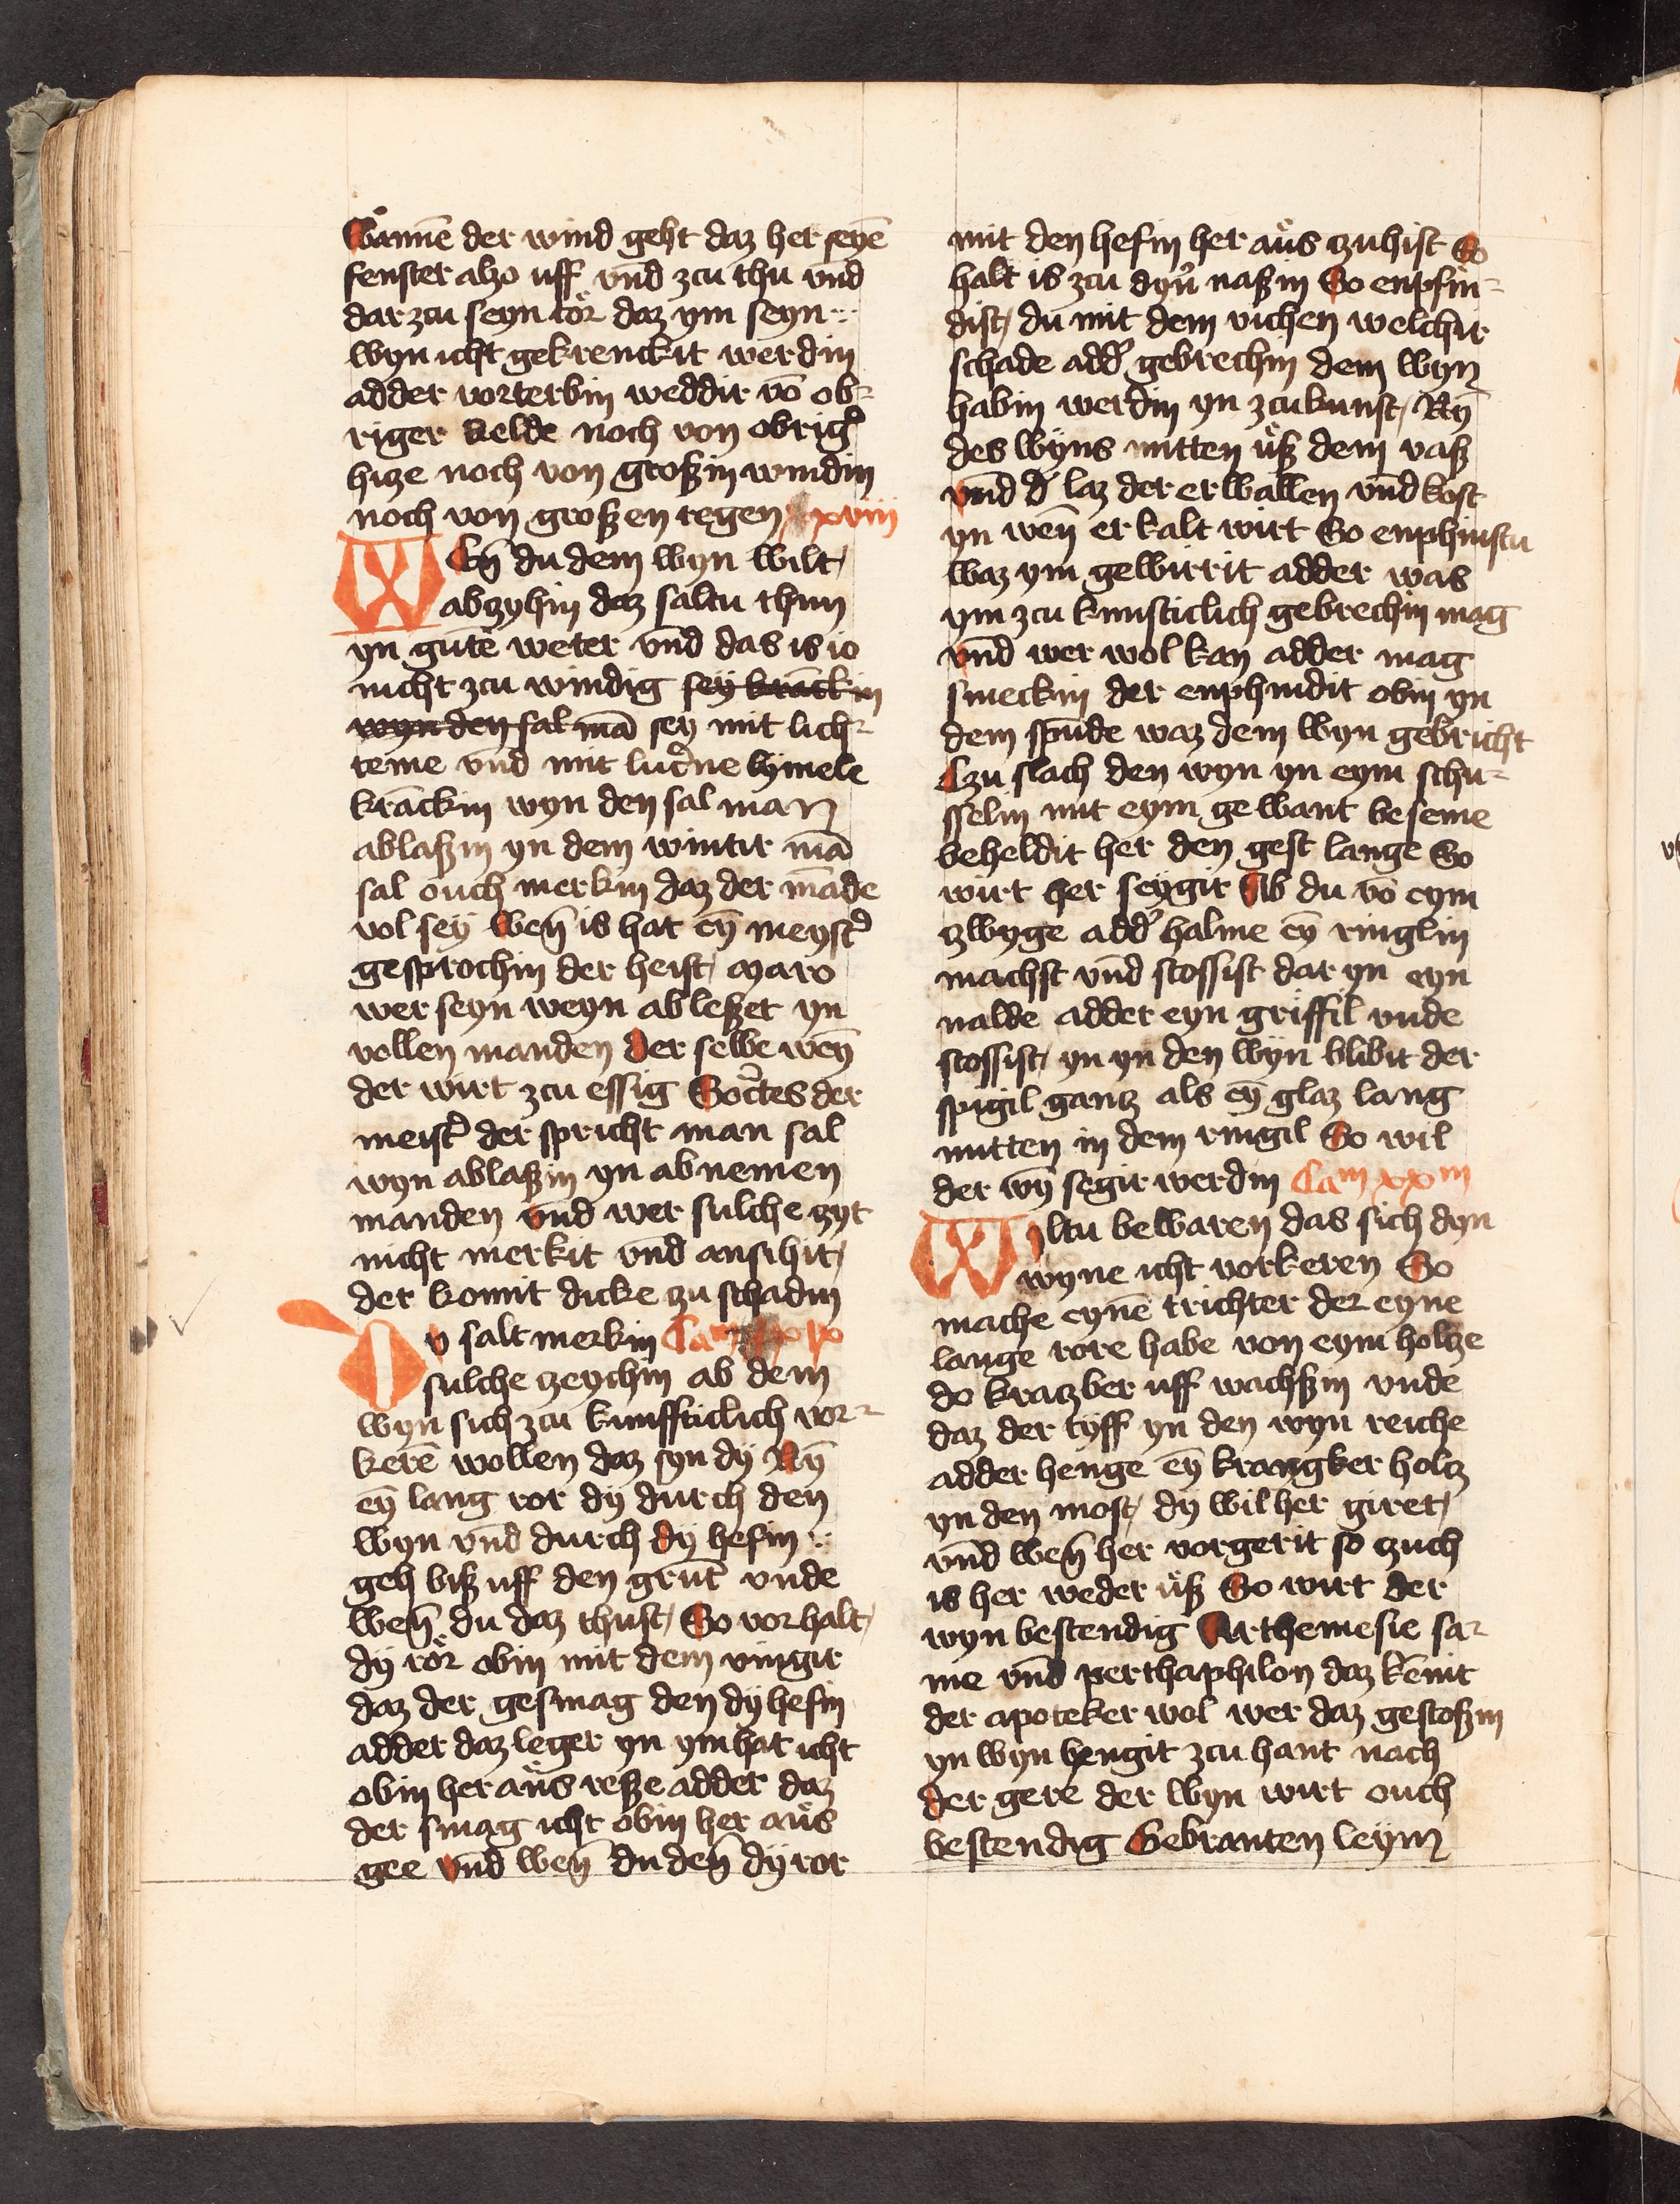 Wannē der wind geht daz her seynē
fenster also uff vnd zcu thu vnd
dar zcu seyn tor daz ym seyn
wyn icht gekrenckit werdin
adder vorterbin weddir vō ob⸗
riger kelde noch von obrig̾
hize noch von großin windin
noch von großen regen xviii
Wen̄ du dem wyn wilt
abzyhin daz saltu thun
yn gutē weter vnd das is io
nicht zcu windig sey krāckin
wyn den sal mā sey mit lich⸗
teme vnd mit lut̾ne hymele
krāckin wyn den sal man
ablaßin yn dem wintir mā
sal ouch merkin daz der māde
vol sey wen̄ is hat eȳ meyst̾
gesprochin der heist maro
wer seyn weyn ableßet yn
vollen manden der selbe wen̄
der wirt zcu essig Soc̾tes der
meist̾ der spricht man sal
wyn ablaßin yn abnemen
manden vnd wer sulche zyt
nicht merkit vnd ansihit
der komit dicke zu schadin
Du salt merkin Cam xix
sulche zeychin ab dem
wyn sich zcu kunffticlich vor⸗
kerē wollen daz syn dy Nȳ
eȳ lang ror dy durch den
wyn vnd durch dy hefin
geh biß uff den grut̄ vnde
wen̄ du daz thust So vorhalt
dy ror obin mit dem vingir
daz der gesmag den dy hefin
adder daz leger yn ym hat icht
obin her aus reße adder daz
der smag icht obin her aus
gee vnd wen̄ du den̄ dy ror
mit den hefin her aus zuhist So
halt is zcu dyn̾ naßin So enpfin⸗
dist du mit dem richen welchir
schade add̾ gebrechin dem wyn
habin werdin yn zcukunft Nȳ
des wyns mitten uß dem vaß
vnd d̾ laz der erwallen vnd kost
yn wen̄ er kalt wirt So enphinstu
waz ym gewirrit adder was
ym zcu kunfticlich gebrechin mag
vnd wer wol kan adder mag
smeckin der enphindit obin yn
dem spūde waz dem wyn gebricht
Czu slach den wyn yn eym schu⸗
sselin mit eym gewant beseme
beheldit her den gest lange So
wirt her seygir Ab du vō eym
zwyge add̾ halme eȳ ringlin
machst vnd stossist dar yn eyn
nalde adder eyn griffil vnde
stossist yn yn den wyn blibit der
spigil gantz als eȳ glaz lang
mitten in dem ringil So wil
der wȳ segir werdin Cam xx m
Wiltu bewaren das sich dyn
wyne icht vorkeren So
mache eynē trichter der eyne
lange rore habe von eym holtze
do kratzber uff wachßin vnde
daz der tyff yn den wyn reiche
adder henge eȳ krangker holtz
yn den most dy wil her giret
vnd wen̄ her vorgerit so zuch
is her weder uß So wirt der
wyn bestendig Arthemesie sa⸗
me vnd perthaphilon daz kēnit
der apoteker wol wer daz gestoßin
yn wyn hengit zcu hant nach
der gere der wyn wirt ouch
bestendig Gebranten leym